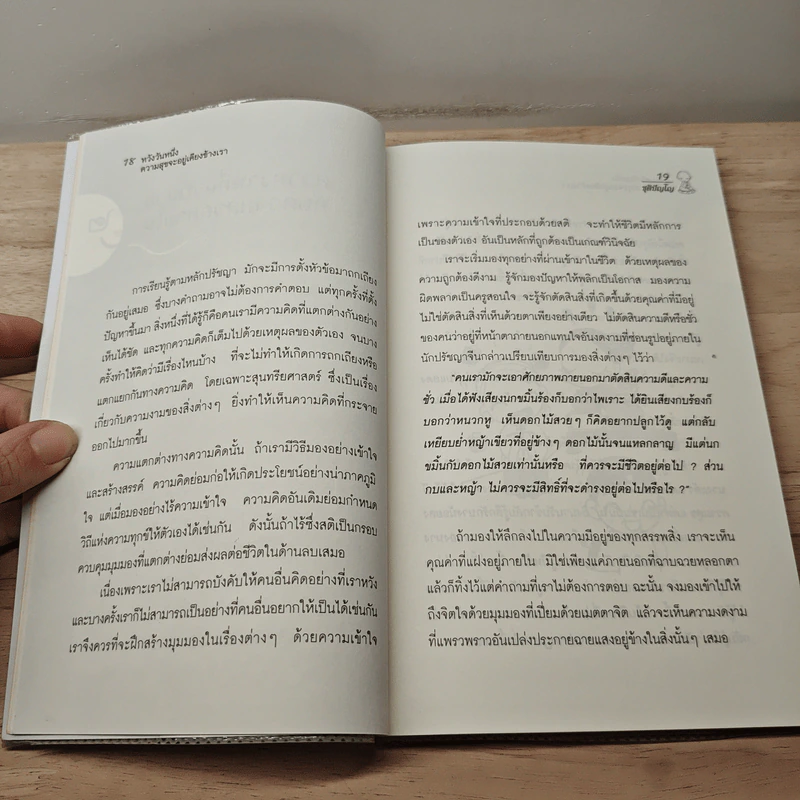 18 หวังวันหนึ่ง
ความสุขจะอยู่เคียงข้างเรา
การเรียนรู้ตามหลักปรัชญา มักจะมีการตั้งหัวข้อมาถกเถียง
กันอยู่เสมอ ซึ่งบางคำถามอาจไม่ต้องการคำตอบ แต่ทุกครั้งที่ตั้ง
ปัญหาขึ้นมา สิ่งหนึ่งที่ได้รู้ก็คือคนเรามีความคิดที่แตกต่างกันอย่าง
เห็นได้ชัด และทุกความคิดก็เต็มไปด้วยเหตุผลของตัวเอง จนบาง
ครั้งทำให้คิดว่ามีเรื่องไหนบ้าง ที่จะไม่ทำให้เกิดการถกเถียงหรือ
แตกแยกกันทางความคิด โดยเฉพาะสุนทรียศาสตร์ ซึ่งเป็นเรื่อง
เกี่ยวกับความงามของสิ่งต่างๆ ยิ่งทำให้เห็นความคิดที่กระจาย
ออกไปมากขึ้น
ความแตกต่างทางความคิดนั้น ถ้าเรามีวิธีมองอย่างเข้าใจ
และสร้างสรรค์ ความคิดย่อมก่อให้เกิดประโยชน์อย่างน่าภาคภูมิ
ใจ แต่เมื่อมองอย่างไร้ความเข้าใจ ความคิดอันเดิมย่อมกำหนด
วิถีแห่งความทุกข์ให้ตัวเองได้เช่นกัน ดังนั้นถ้าไร้ซึ่งสติเป็นกรอบ
ควบคุมมุมมองที่แตกต่างย่อมส่งผลต่อชีวิตในด้านลบเสมอ
เนื่องเพราะเราไม่สามารถบังคับให้คนอื่นคิดอย่างที่เราหวัง
และบางครั้งเราก็ไม่สามารถเป็นอย่างที่คนอื่นอยากให้เป็นได้เช่นกัน
เราจึงควรที่จะฝึกสร้างมุมมองในเรื่องต่างๆ ด้วยความเข้าใจ
19
ชุติปัญโญ
เพราะความเข้าใจที่ประกอบด้วยสติ จะทำให้ชีวิตมีหลักการ
เป็นของตัวเอง อันเป็นหลักที่ถูกต้องเป็นเกณฑ์วินิจฉัย
เราจะเริ่มมองทุกอย่างที่ผ่านเข้ามาในชีวิต ด้วยเหตุผลของ
ความถูกต้องดีงาม รู้จักมองปัญหาให้พลิกเป็นโอกาส มองความ
ผิดพลาดเป็นครูสอนใจ จะรู้จักตัดสินสิ่งที่เกิดขึ้นด้วยคุณค่าที่มีอยู่
ไม่ใช่ตัดสินสิ่งที่เห็นด้วยตาเพียงอย่างเดียว ไม่ตัดสินความดีหรือชั่ว
ของคนว่าอยู่ที่หน้าตาภายนอกแทนใจอันงดงามที่ซ่อนรูปอยู่ภายใน
นักปรัชญาจีนกล่าวเปรียบเทียบการมองสิ่งต่างๆ ไว้ว่า
"คนเรามักจะเอาศักยภาพภายนอกมาตัดสินความดีและความ
ชั่ว เมื่อได้ฟังเสียงนกขมิ้นร้องก็บอกว่าไพเราะ ได้ยินเสียงกบร้องก็
บอกว่าหนวกหู เห็นดอกไม้สวยๆ ก็คิดอยากปลูกไว้ดู แต่กลับ
เหยียบย่ำหญ้าเขียวที่อยู่ข้างๆ ดอกไม้นั้นจนแหลกลาญ มีแต่นก
ขมิ้นกับดอกไม้สวยเท่านั้นหรือ ที่ควรจะมีชีวิตอยู่ต่อไป ? ส่วน
กบและหญ้า ไม่ควรจะมีสิทธิ์ที่จะดำรงอยู่ต่อไปหรือไร ?"
ถ้ามองให้ลึกลงไปในความมีอยู่ของทุกสรรพสิ่ง เราจะเห็น
คุณค่าที่แฝงอยู่ภายใน มิใช่เพียงแค่ภายนอกที่ฉาบฉวยหลอกตา
แล้วก็ทิ้งไว้แต่คำถามที่เราไม่ต้องการตอบ ฉะนั้น จงมองเข้าไปให้
ถึงจิตใจด้วยมุมมองที่เปี่ยมด้วยเมตตาจิต แล้วจะเห็นความงดงาม
ที่แพรวพราวอันเปล่งประกายฉายแสงอยู่ข้างในสิ่งนั้นๆ เสมอ